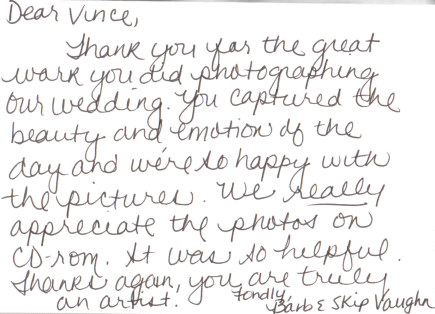 Dear Vince,
Thank you for the great
work you did photographing
our wedding. You captured the
beauty and emotion of the
day and we're so happy with
the pictures. We really
appreciate the photos on
CD-rom. It was so helpful.
Thanks again, you are truly
an artist. Fondly,
Barb & Skip Vaughn